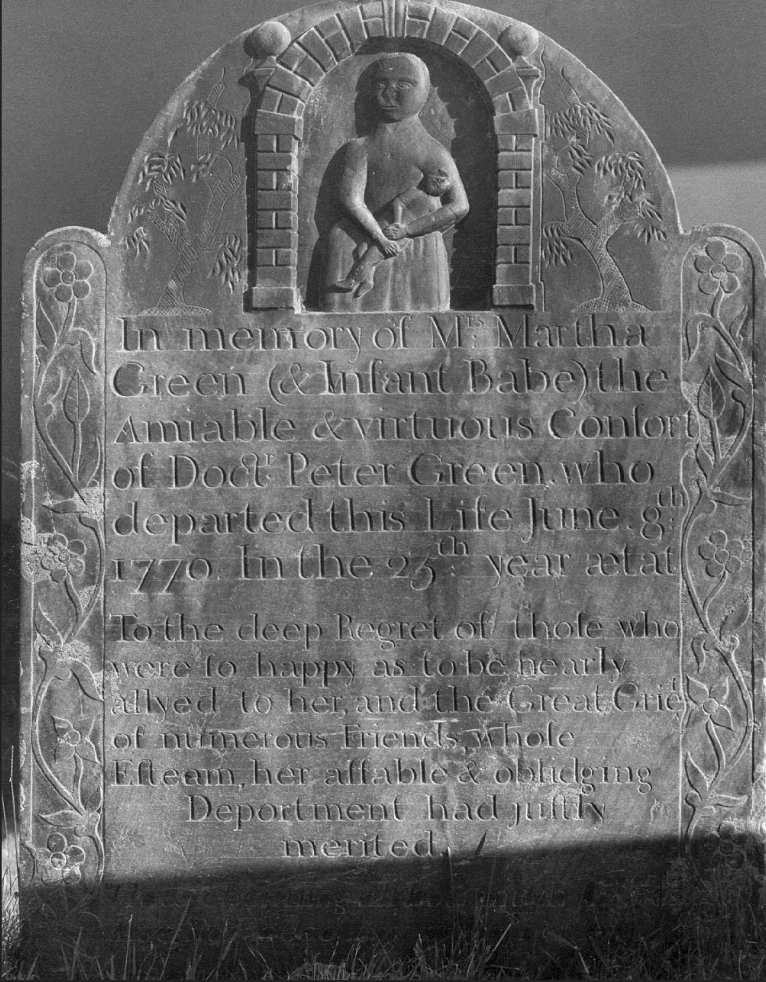 In memory of Mrs. Martha
Green (& Infant Babe) the
Amiable & virtuous Conſort
of Doctr. Peter Green, who
departed this Life June. 8th.
1770. In the 25th. year ætat
To the deep Regret of thoſe who
were ſo happy as to be nearly
allyed to her, and the Great Grief
of numerous Friends, whoſe
Eſteem, her affable & oblidging
Deportment had juſtly
merited.